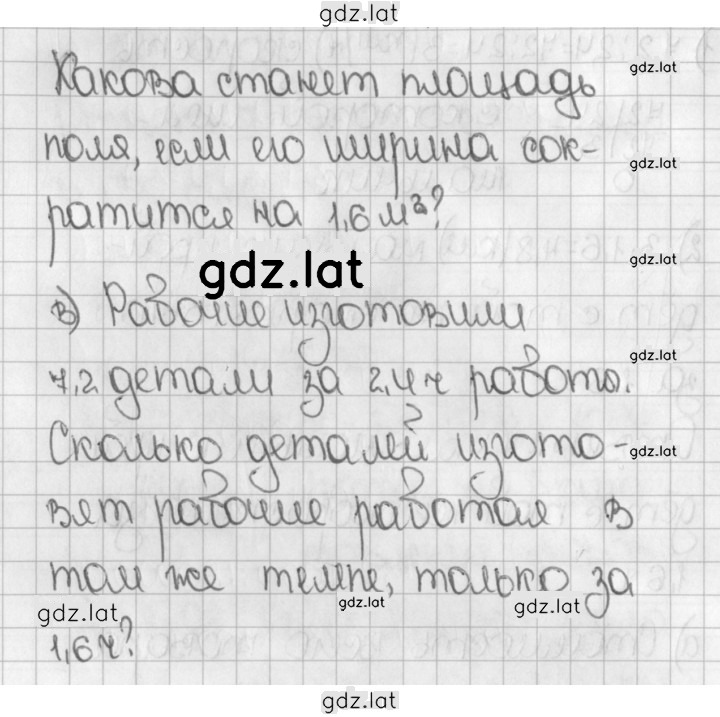 gdz.lat
Какова станет площадь
gdz.lat
поля, если его ширина сок-
gdz.lat
ратится на 1,6 м²?
gdz.lat
gdz.lat
в) Рабочие изготовили
gdz.lat
7,2 детали за 2,4 ч работы.
Сколько деталей изгото-
gdz.lat
вят рабочие работая в
том же темпе, только за
gdz.lat gdz.lat gdz.lat
1,6 ч?
gdz.lat